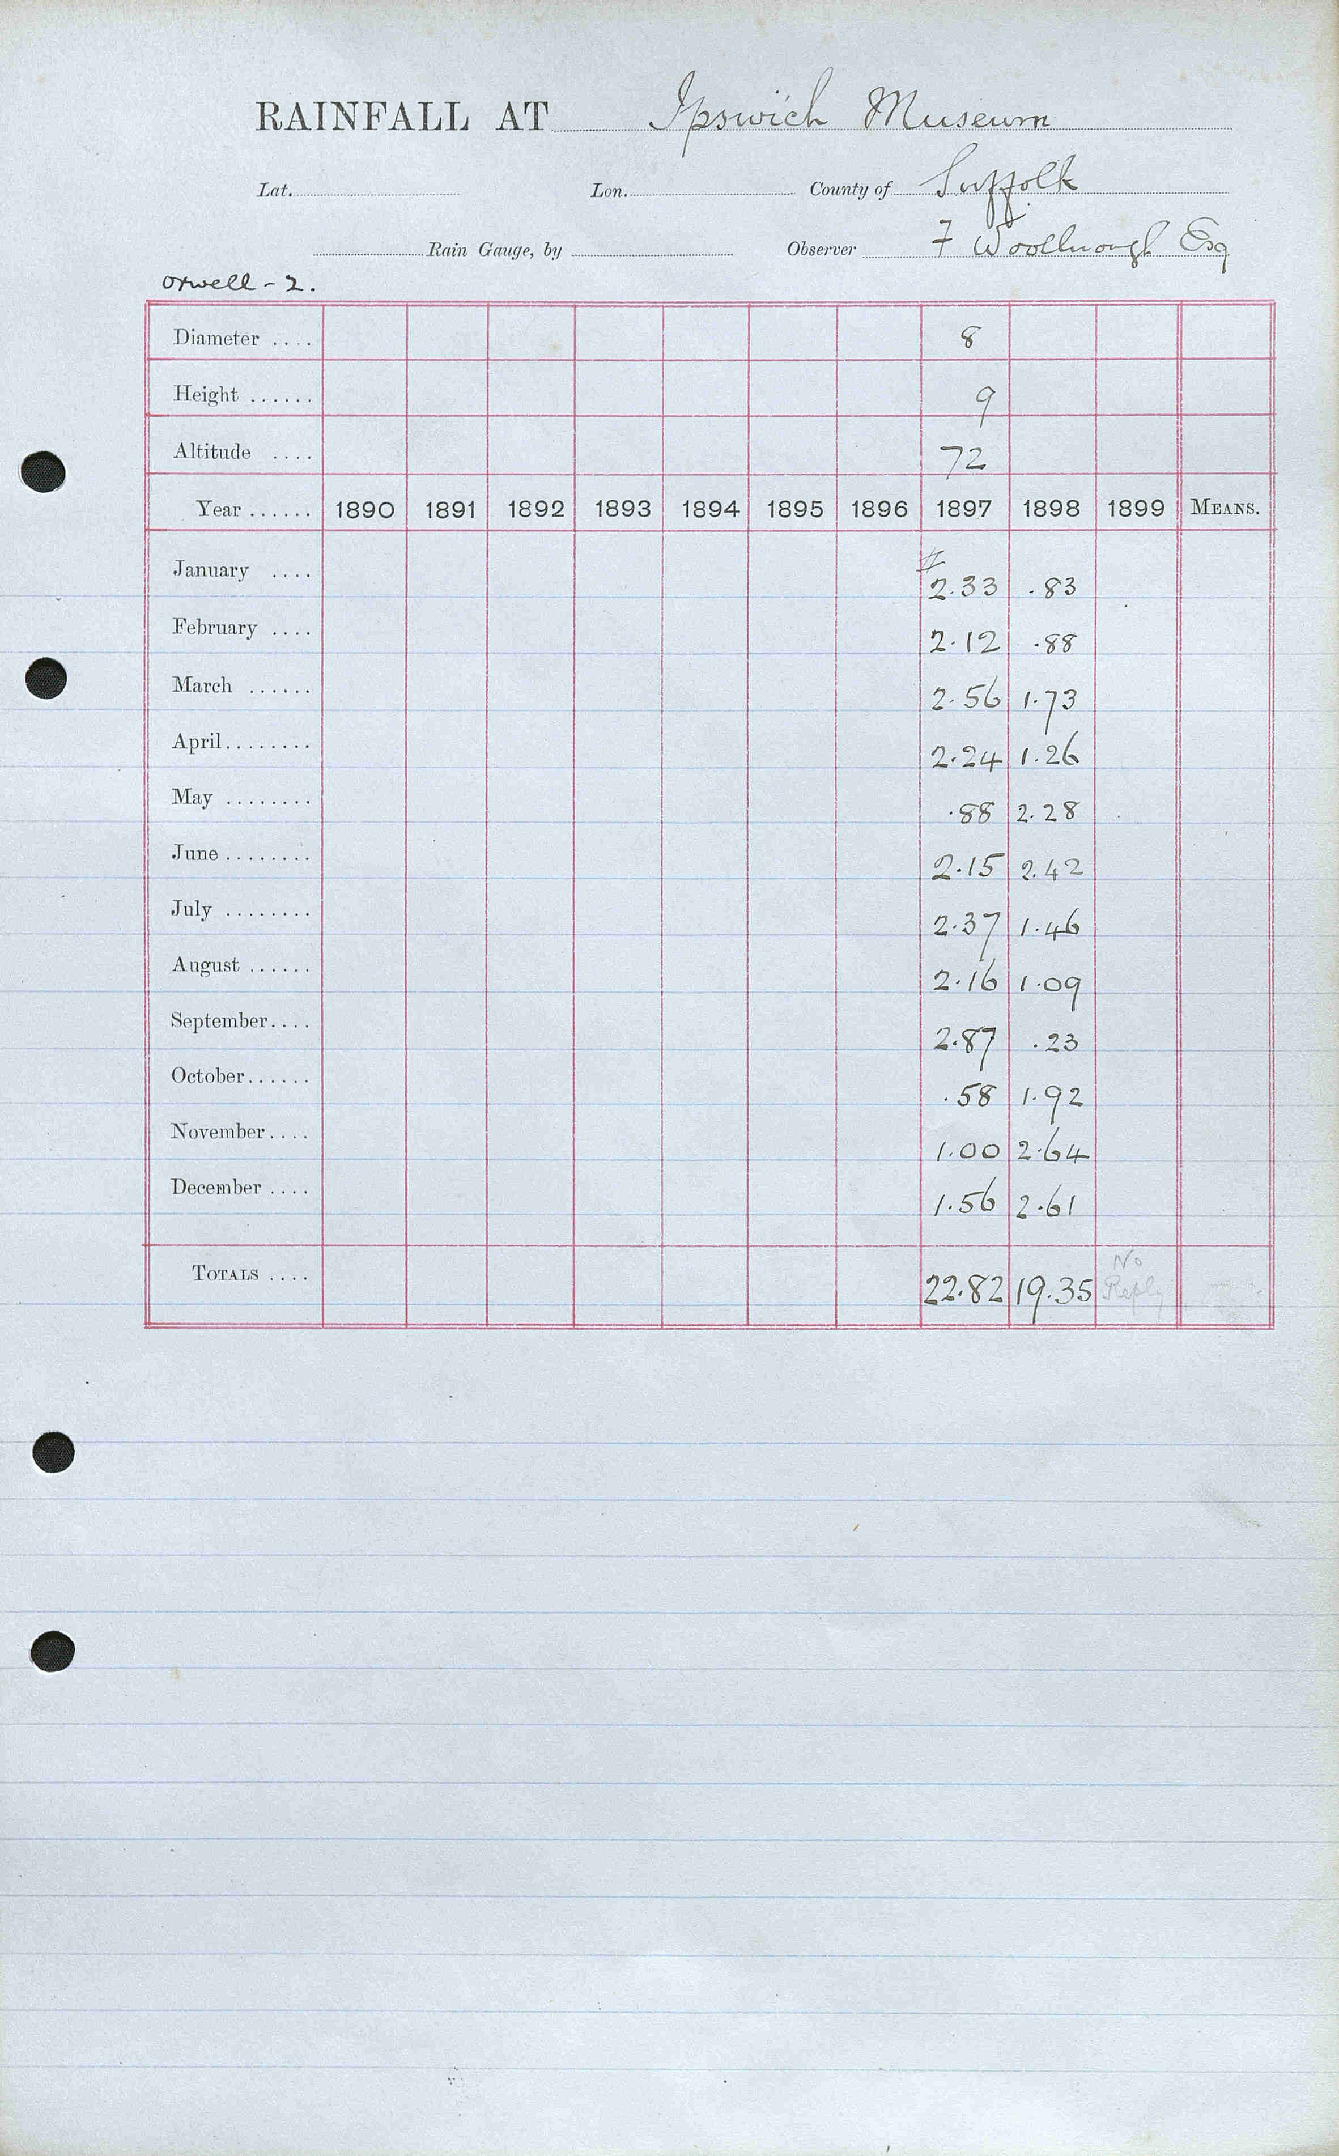 RAINFALL AT Ipswich Museum
Lat. Lon. County of Suffolk
Rain Gauge, by Observer F Woolnough Esq
Orwell - 2.
Diameter .... 8
Height ...... 9
Altitude .... 72
Year ...... 1890 1891 1892 1893 1894 1895 1896 1897 1898 1899 MEANS.
January .... # 2.33 .83
February .... 2.12 .88
March ...... 2.56 1.73
April........ 2.24 1.26
May ........ .88 2.28
June ........ 2.15 2.42
July ........ 2.37 1.46
August ...... 2.16 1.09
September.... 2.87 .23
October...... .58 1.92
November.... 1.00 2.64
December .... 1.56 2.61
TOTALS .... 22.82 19.35 No Reply